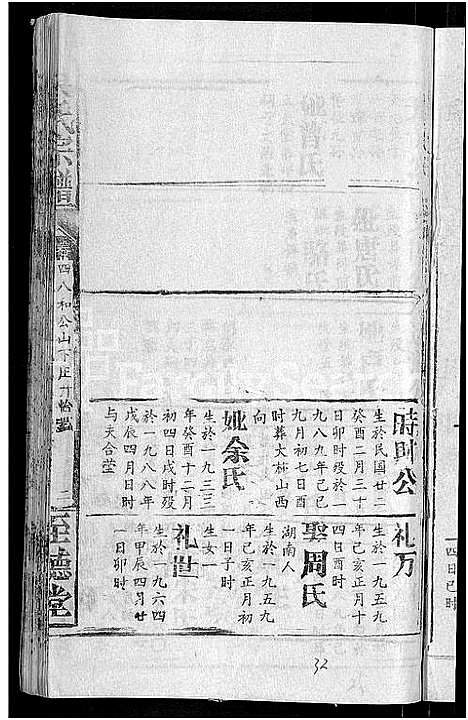 吴氏宗譜
四八和公山下正丁始
二
至德堂
時財公
生於民国廿二
癸酉二月三十
日卯时殁於一
九八九年己巳
九月初七日酉
时葬大林山西
向
妣余氏
生於一九三三
年癸酉十二月
初四日戌时殁
於一九八八年
戊辰四月日时
与夫合茔
礼万
生於一九五九
年己亥正月十
四日酉时
娶周氏
湖南人
生於一九五九
年己亥正月初
一日子时
生女一
礼世
生於一九六四
年甲辰四月廿
一日卯时
四日巳时
32